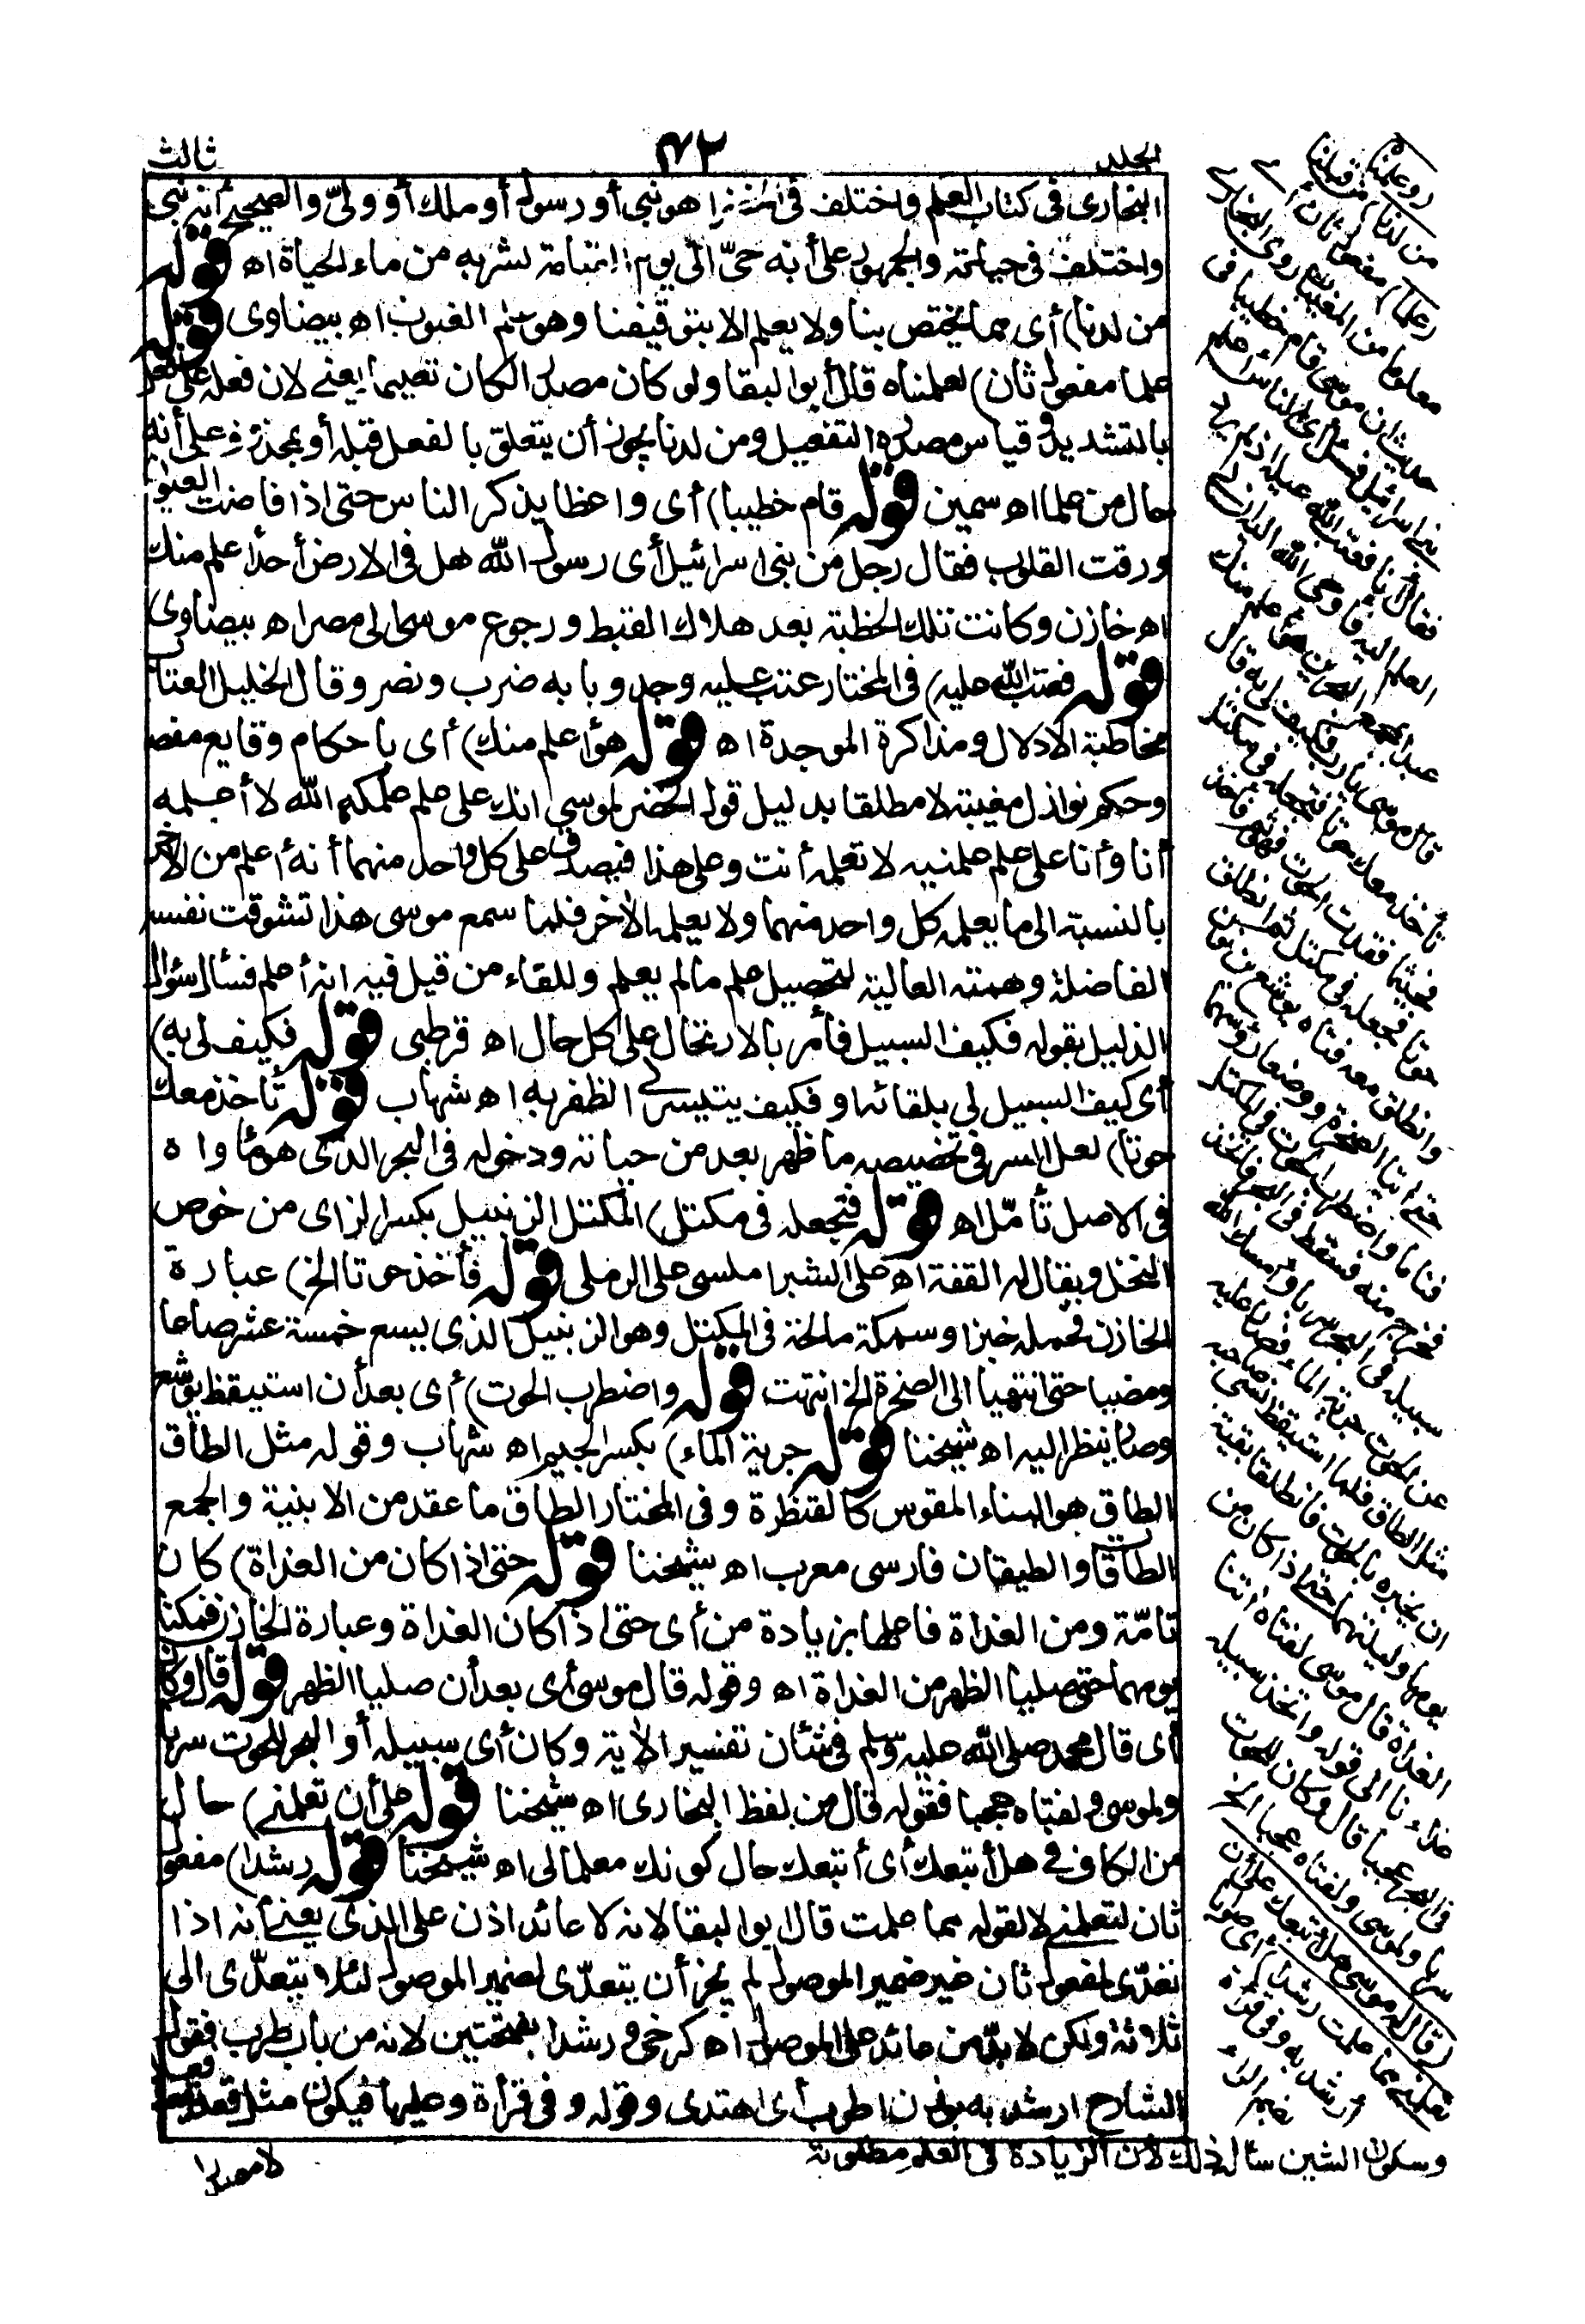 الجلد ٤٢ ثالث
البخارى فى كتاب العلم واختلف فى أنه هو نبى أو رسول أو ملك أو ولىّ والصحيح أنه نبى
واختلف فى حياته والجمهور على أنه حىّ الى يوم القيامة لشربه من ماء الحياة اه قوله
من لدنا) أى مما يختص بنا ولا يعلم الا بتوقيفنا وهو علم الغيوب اه بيضاوى قوله
علما مفعول ثان) لعلمناه قال أبو البقا ولو كان مصدرا لكان تعليما يعنے لان فعله على فعل
بالتشديد وقياس مصدره التفعيل ومن لدنا يجوز أن يتعلق بالفعل قبله أو بمحذوف على أنه
حال من علما اه سمين قوله قام خطيبا) أى واعظا يذكر الناس حتى اذا فاضت العيون
ورقت القلوب فقال رجل من بنى اسرائيل أى رسول الله هل فى الارض أحد اعلم منك
اه خازن وكانت تلك الخطبة بعد هلاك القبط ورجوع موسى الى مصر اه بيضاوى
قوله فعتب الله عليه) فى المختار عتب عليه وجد وبابه ضرب ونصر وقال الخليل العتاب
مخاطبة الادلال ومذاكرة الموجدة اه قوله هو أعلم منك) أى باحكام وقايع مفصلة
وحكم نوازل مغيبة لا مطلقا بدليل قول الخضر لموسى انك على علم علمكه الله لا أعلمه
أنا وأنا على علم علمنيه لا تعلمه أنت وعلى هذا فيصدق على كل واحد منهما أنه أعلم من الآخر
بالنسبة الى ما يعلمه كل واحد منهما ولا يعلمه الآخر فلما سمع موسى هذا تشوقت نفسه
الفاضلة وهمته العالية لتحصيل علم ما لم يعلم وللقاء من قيل فيه انه أعلم فسأل سؤال
الذليل بقوله فكيف السبيل فأمر بالارتحال على كل حال اه قرطبى قوله فكيف لى به)
أى كيف السبيل لى بلقائه او فكيف يتيسر لى الظفر به اه شهاب قوله تأخذ معك
حوتا) لعل السر فى تخصيصه ما ظهر بعد من حياته ودخوله فى البحر الذى هو مأواه
فى الاصل تأمّل اه قوله فتجعله فى مكتل) المكتل الزنبيل بكسر الزاى من خوص
النخل ويقال له القفة اه على الشبراملسى على الرملى قوله فأخذ حوتا الخ) عبارة
الخازن فحمله خبزا وسمكة مالحة فى المكتل وهو الزنبيل الذى يسع خمسة عشر صاعا
ومضيا حتى انتهيا الى الصخرة الخ انتهت قوله واضطرب الحوت) أى بعد أن استيقظ يوشع
وصار ينظر اليه اه شيخنا قوله جرية الماء) بكسر الجيم اه شهاب وقوله مثل الطاق
الطاق هو البناء المقوس كالقنطرة وفى المختار الطاق ما عقد من الابنية والجمع
الطاقات والطيقان فارسى معرب اه شيخنا قوله حتى اذا كان من الغداة) كان
تامّة ومن الغداة فاعلها بزيادة من أى حتى اذا كان الغداة وعبارة الخازن فمكثا
يومهما حتى صليا الظهر من الغداة اه وقوله قال موسى أى بعد أن صليا الظهر قوله قال وكان
أى قال محمد صلى الله عليه وسلم فى شأن تفسير الآية وكان أى سبيله أو البحر للحوت سربا
ولموسى ولفتاه عجبا فقوله قال من لفظ البخارى اه شيخنا قوله على أن تعلمنے) حال
من الكاف فے هل أتبعك أى أتبعك حال كونك معلما لى اه شيخنا قوله رشدا) مفعول
ثان لتعلمنے لا لقوله مما علمت قال ابو البقا لانه لا عائد اذن على الذى يعنے أنه اذا
تعدّى لمفعول ثان غير ضمير الموصول لم يجز أن يتعدّى لضمير الموصول لئلا يتعدّى الى
ثلاثة ولكن لا بدّ من عائد على الموصول اه كرخى ورشدا بفتحتين لانه من باب طرب فقول
الشارح ارشد به بوزن اطرب أى اهتدى وقوله وفى قرأة وعليها فيكون مثل قفل
لا مصدرا
(وعلمناه من لدنا) من قبلنا
(علما) مفعول ثان أے
معلوما من المغيبات روى البخارے
حديث ان موسى قام خطيبا فى
بنے اسرائيل فسئل أى الناس اعلم
فقال أنا فعتب الله عليه اذ لم يرد
العلم اليه فأوحى الله اليه ان لے
عبدا بمجمع البحرين هو أعلم منك
قال موسى يا رب فكيف لى به قال
تأخذ معك حوتا فتجعله فى مكتل
فحيثما فقدت الحوت فهو ثم فأخذ
حوتا فجعله فى مكتل ثم انطلق
وانطلق معه فتاه يوشع بن نون
حتى أتيا الصخرة ووضعا رؤسهما
فناما واضطرب الحوت فى المكتل
فخرج منه فسقط فى البحر فاتخذ
سبيله فى البحر سربا وأمسك الله
عن الحوت جرية الماء فصار عليه
مثل الطاق فلما استيقظ نسى صاحبه
ان يخبره بالحوت فانطلقا بقية
يومهما وليلتهما حتى اذا كان من
الغداة قال موسى لفتاه اتنا
غداءنا الى قوله واتخذ سبيله
فى البحر عجبا قال وكان للحوت
سربا ولموسى ولفتاه عجبا الخ
(قال له موسى هل أتبعك على أن
تعلمنے مما علمت رشدا) أى صوابا
أرشد به وفى قرأة
بضم الراء
وسكون الشين سأل ذلك لأن الزيادة فى العلم مطلوبة